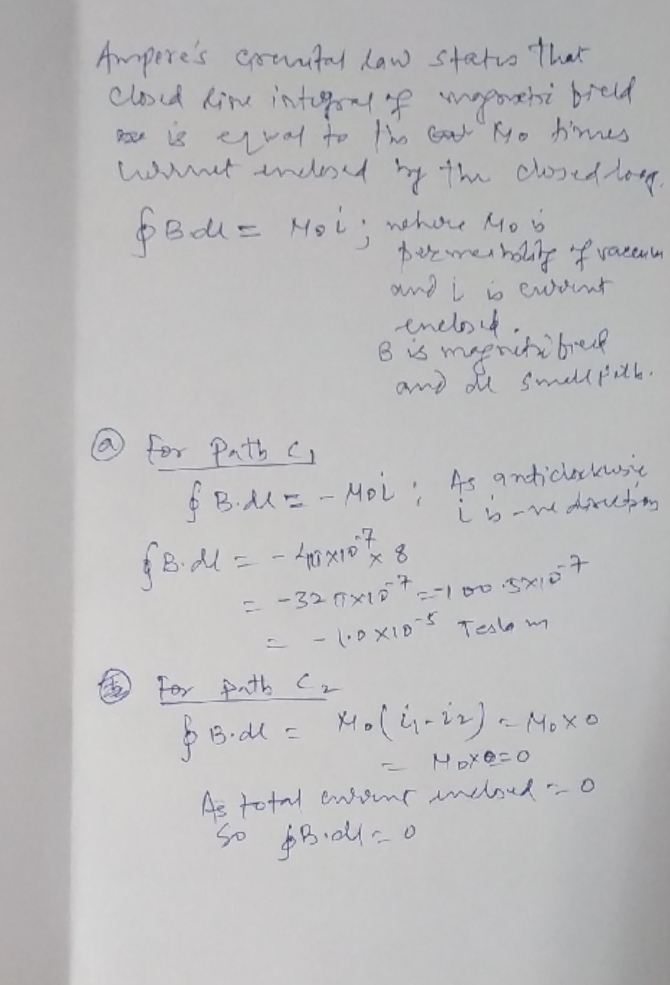 Ampere's circuital law states that
closed line integral of magnetic field
is equal to the μ0 times
current enclosed by the closed loop.
∮B.dl = μ0i ; where μ0 is
permeability of vaccum
and i is current
enclosed.
B is magnetic field
and dl small path.
(a) For Path C1
∮B.dl = -μ0i ; As anticlockwise
i is -ve direction
∮B.dl = -4π×10^-7 × 8
= -32π×10^-7 = -100.5×10^-7
= -1.0×10^-5 Tesla m
For path C2
∮B.dl = μ0(i1-i2) = μ0×0
= μ0×0=0
As total current inclosed = 0
So ∮B.dl = 0